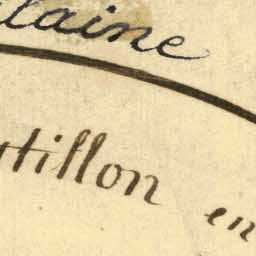 laine
tillon en